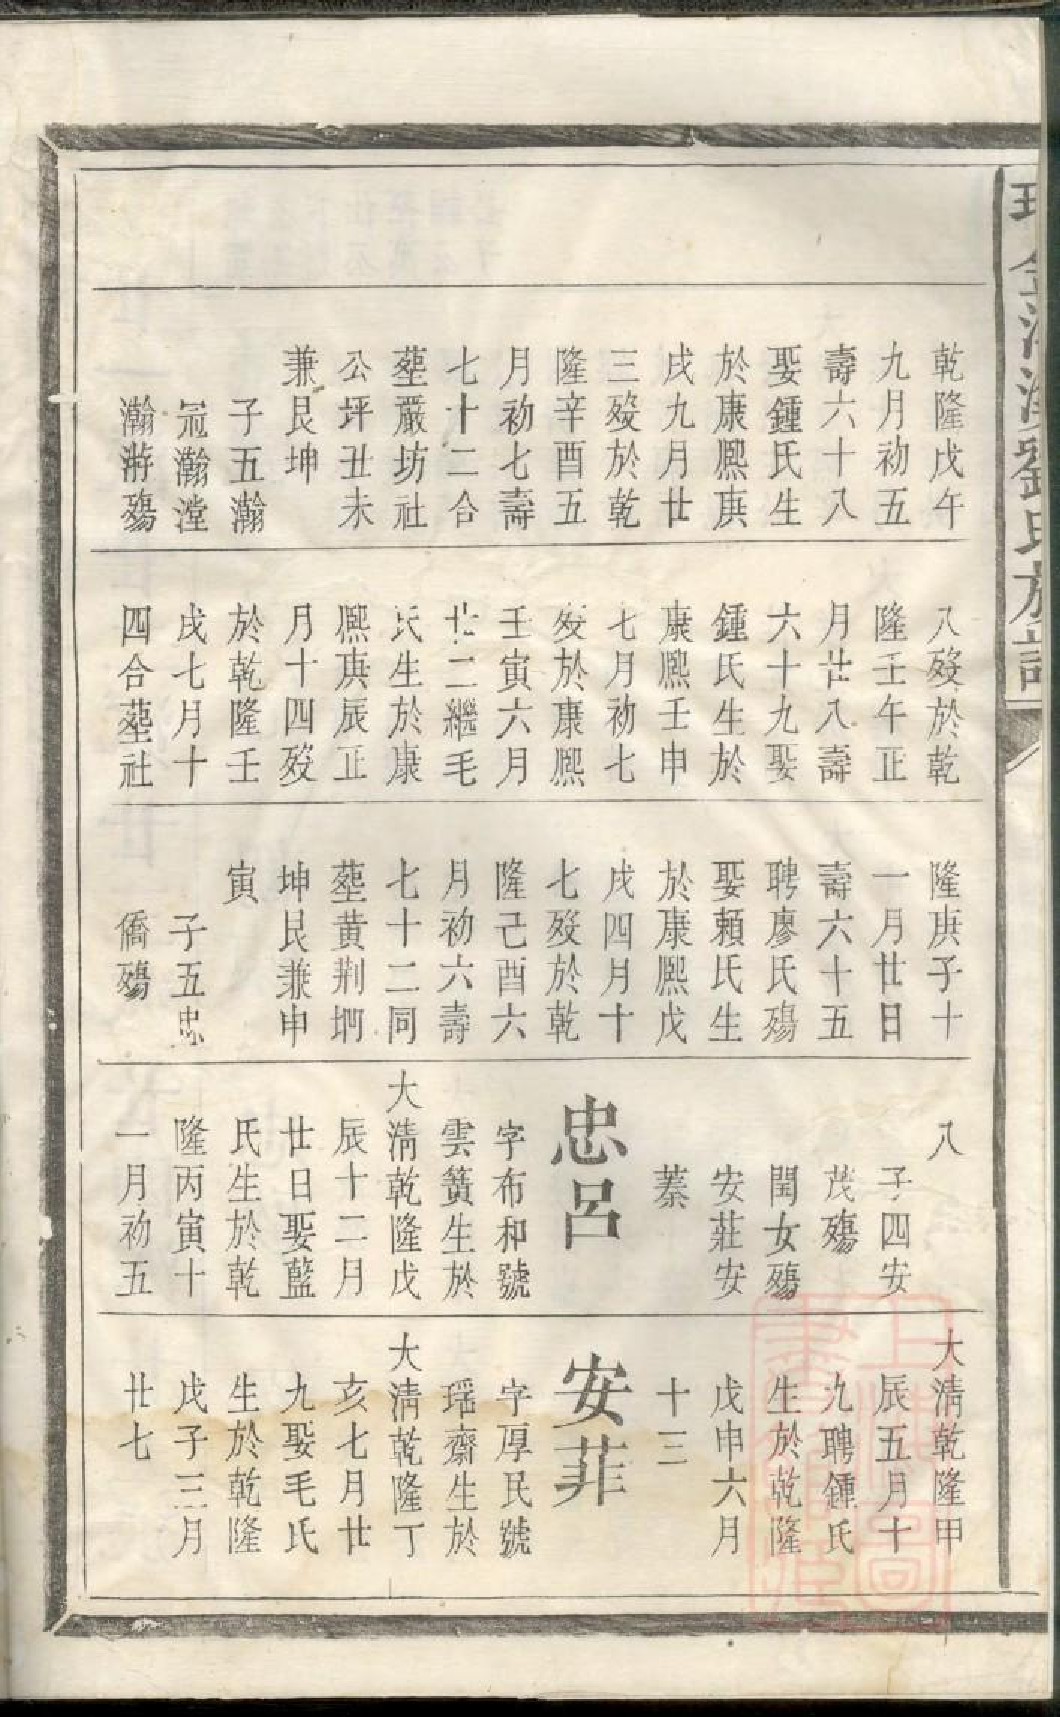 劉氏族譜
乾隆戊午
九月初五
壽六十八
娶鍾氏生
於康熙庚
戌九月廿
三歿於乾
隆辛酉五
月初七壽
七十二合
塟嚴坊社
公坪丑未
兼艮坤
子五瀚
冠瀚瀅
瀚游殤
八歿於乾
隆壬午正
月廿八壽
六十九娶
鍾氏生於
康熙壬申
七月初七
歿於康熙
壬寅六月
廿二繼毛
氏生於康
熙庚辰正
月十四歿
於乾隆壬
戌七月十
四合塟社
隆庚子十
一月廿日
壽六十五
聘廖氏殤
娶賴氏生
於康熙戊
戌四月十
七歿於乾
隆己酉六
月初六壽
七十二同
塟黃荆坰
坤艮兼申
寅
子五忠
僑殤
八
子四安
茂殤
閏女殤
安莊安
蓁
忠呂
字布和號
雲簧生於
大淸乾隆戊
辰十二月
廿日娶藍
氏生於乾
隆丙寅十
一月初五
大淸乾隆甲
辰五月十
九聘鍾氏
生於乾隆
戊申六月
十三
安菲
字厚民號
瑶齋生於
大淸乾隆丁
亥七月廿
九娶毛氏
生於乾隆
戊子三月
廿七